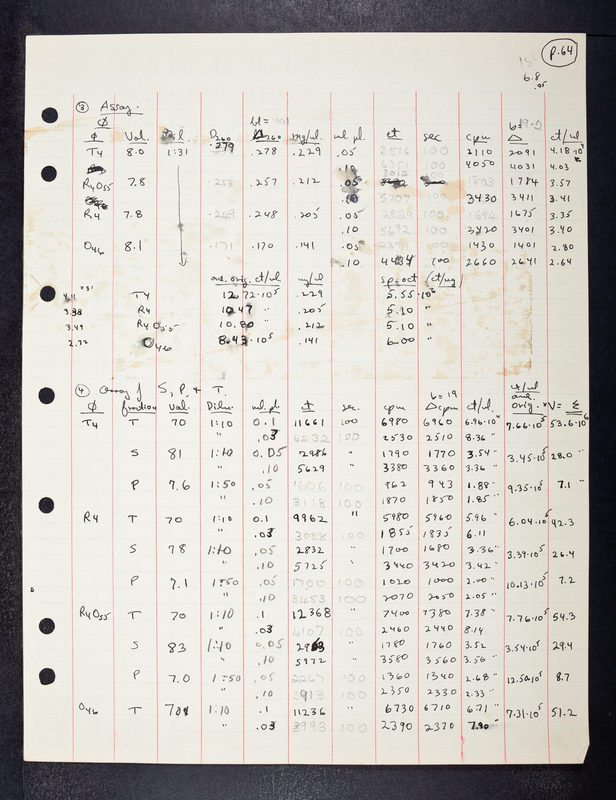 P. 64
6.8
.05
③ Assay.
φ
bl = .001
b= 19.2
φ Vol. Dil. D260 Δ260 mg/ml. ml. pl. ct sec cpm Δ ct/ul
T4 8.0 1:31 .279 .278 .229 .05 2516 100 2110 2091 4.18·10⁴
.10 4050 4031 4.03
R4O55 7.8 .258 .257 .212 .05 1803 1784 3.57
.10 5707 100 3430 3411 3.41
R4 7.8 .249 .248 .205 .05 2829 100 1694 1675 3.35
.10 5692 100 3420 3401 3.40
O46 8.1 .171 .170 .141 .05 100 1430 1401 2.80
.10 4434 100 2660 2641 2.64
ave. orig. ct/ul mg/ul sp. act (ct/ug)
4.11 ×31 T4 12.72·10⁵ .229 5.55·10⁶
3.38 R4 10.47 " .205 5.10 "
3.49 R4O55 10.80 " .212 5.10 "
2.72 O46 8.43·10⁵ .141 6.00 "
④ Assay of S, P, + T.
φ fraction Vol. Dilu. ml. pl. ct sec. cpm b=19 Δcpm ct/ul. ct/ul ave orig. × V = Σ
T4 T 70 1:10 0.1 11661 100 6980 6960 6.96·10⁴ 7.66·10⁵ 53.6·10⁶
" .03 4232 100 2530 2510 8.36 "
S 81 1:10 0.05 2986 " 1790 1770 3.54 " 3.45·10⁵ 28.0 "
.10 5629 " 3380 3360 3.36 "
P 7.6 1:50 .05 1606 100 962 943 1.88 " 9.35·10⁵ 7.1 "
" .10 3118 100 1870 1850 1.85 "
R4 T 70 1:10 0.1 9962 " 5980 5960 5.96 " 6.04·10⁵ 42.3
" .03 3088 100 1855 1835 6.11
S 78 1:10 .05 2832 " 1700 1680 3.36 " 3.39·10⁵ 26.4
.10 5725 " 3440 3420 3.42 "
P 7.1 1:50 .05 1700 100 1020 1000 2.00 " 10.13·10⁵ 7.2
.10 3453 100 2070 2050 2.05 "
R4O55 T 70 1:10 .1 12368 7400 7380 7.38 " 7.76·10⁵ 54.3
.03 4107 100 2460 2440 8.14
S 83 1:10 0.05 2963 " 1780 1760 3.52 3.54·10⁵ 29.4
.10 5972 " 3580 3560 3.56 "
P 7.0 1:50 .05 2267 100 1360 1340 2.68 " 12.50·10⁵ 8.7
.10 3913 100 2350 2330 2.33 "
O46 T 70 1:10 .1 11236 " 6730 6710 6.71 " 7.31·10⁵ 51.2
" .03 3993 100 2390 2370 7.90 "